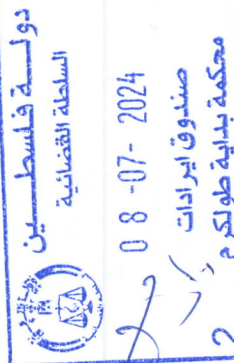 دولة فلسطين
السلطة القضائية
0 8 -07- 2024
صندوق ايرادات
محكمة بداية طولكرم
2